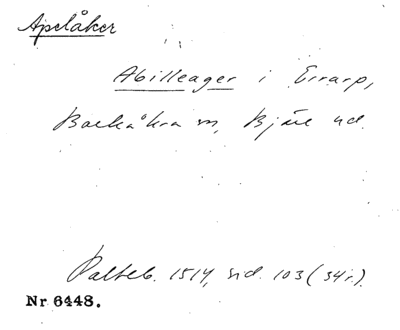 Apelåker
Abilleager i Errarp,
Backåkra sn, Bjäre hd.
Palteb. 1514, sid. 103 (34r).
Nr 6448.